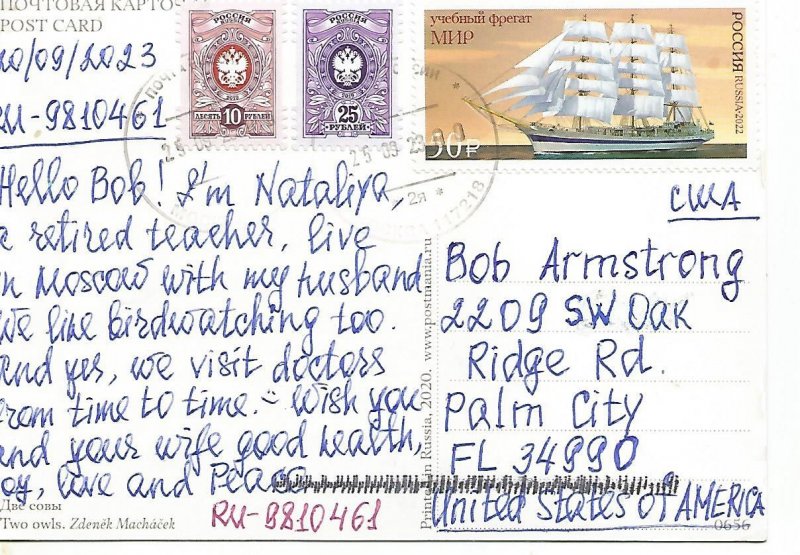 ПОЧТОВАЯ КАРТОЧ
POST CARD
20/09/2023
RU-9810461
РОССИЯ
2019
ДЕСЯТЬ 10 РУБЛЕЙ
РОССИЯ
2019
25
РУБЛЕЙ
учебный фрегат
МИР
РОССИЯ RUSSIA·2022
50₽
117218
2я *
Hello Bob! I'm Nataliya,
a retired teacher, live
in Moscow with my husband
We like birdwatching too.
and yes, we visit doctors
from time to time. Wish you
and your wife good health,
joy, love and Peace
RU-9810461
Две совы
Two owls. Zdeněk Macháček
Printed in Russia, 2020. www.postmania.ru
США
Bob Armstrong
2209 SW Oak
Ridge Rd.
Palm City
FL 34990
United States of AMERICA
0656